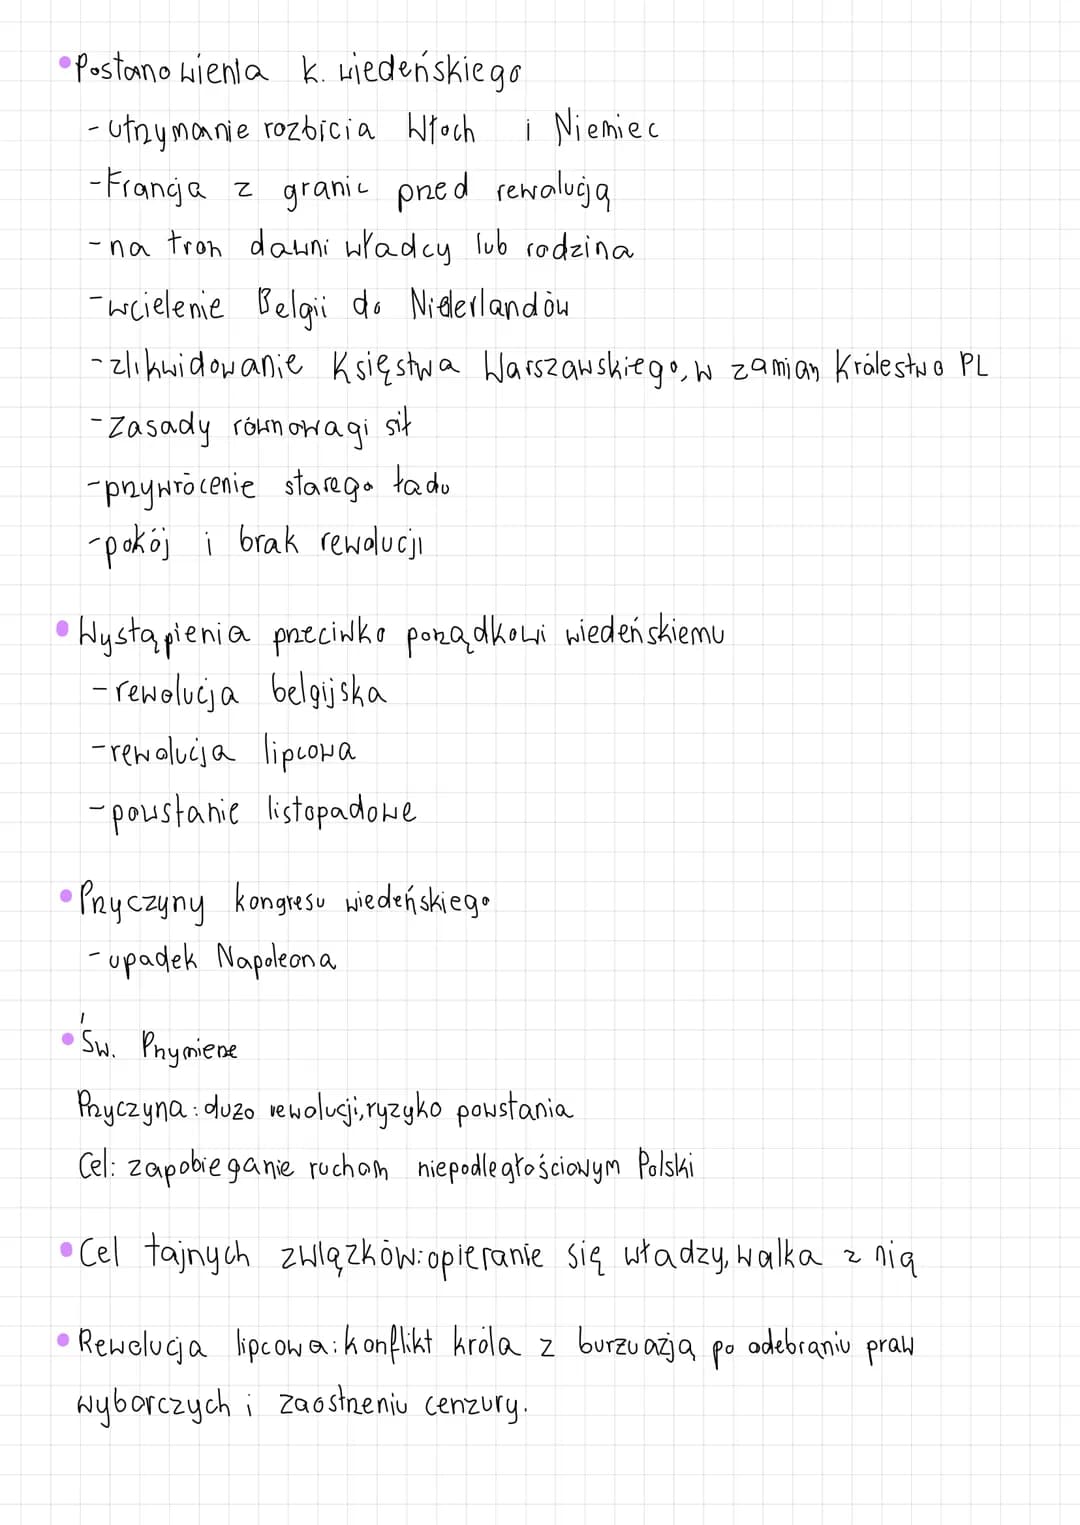 • Postanowienia k. wiedeńskiego
- utrzymanie rozbicia Włoch i Niemiec
- Francja z granic przed rewolucją
- na tron dawni władcy lub rodzina
- wcielenie Belgii do Niderlandów
- zlikwidowanie Księstwa Warszawskiego, w zamian Królestwo PL
- Zasady równowagi sił
- przywrócenie starego ładu
- pokój i brak rewolucji
• Wystąpienia przeciwko porządkowi wiedeńskiemu
- rewolucja belgijska
- rewolucja lipcowa
- powstanie listopadowe
• Przyczyny kongresu wiedeńskiego
- upadek Napoleona
• Św. Przymierze
Przyczyna: dużo rewolucji, ryzyko powstania
Cel: zapobieganie ruchom niepodległościowym Polski
• Cel tajnych związków: opieranie się władzy, walka z nią
• Rewolucja lipcowa: konflikt króla z burżuazją po odebraniu praw
wyborczych i zaostrzeniu cenzury.